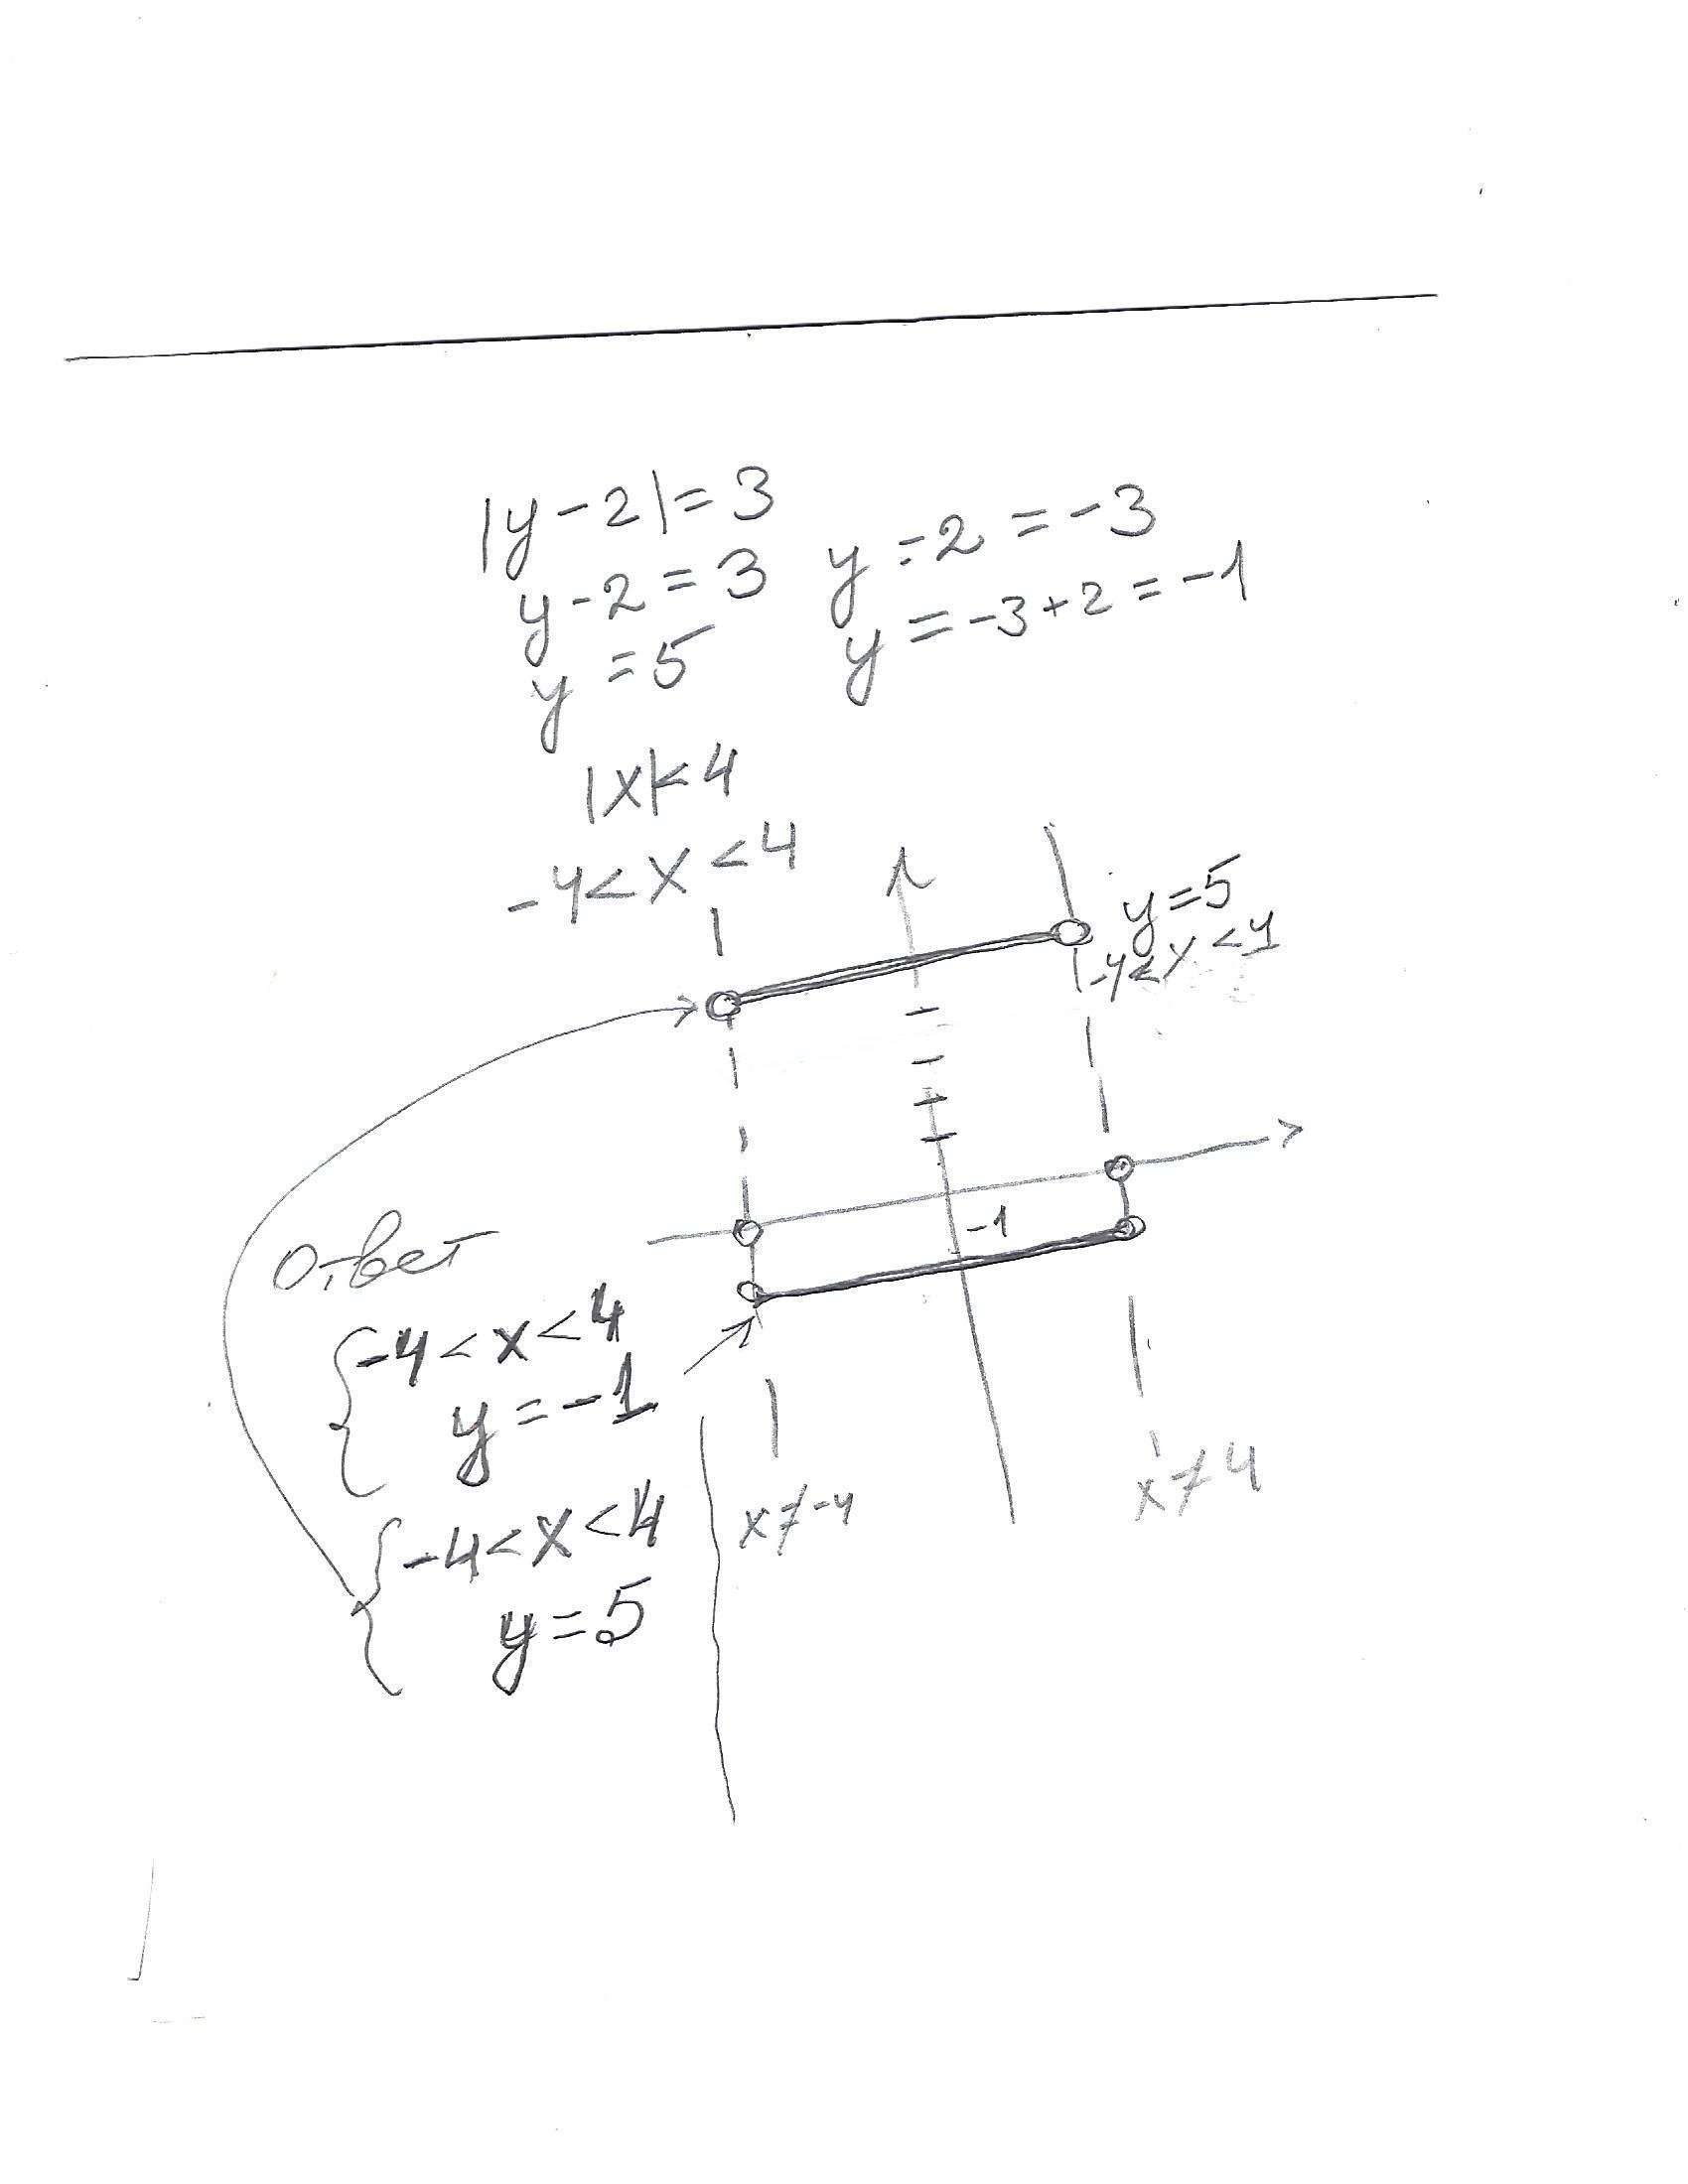 |y-2|=3
y-2=3 y-2=-3
y=5 y=-3+2=-1
|x|<4
-4<x<4
y=5
-4<x<4
-1
Ответ
{-4<x<4
y=-1
{-4<x<4
y=5
x≠-4
x≠4